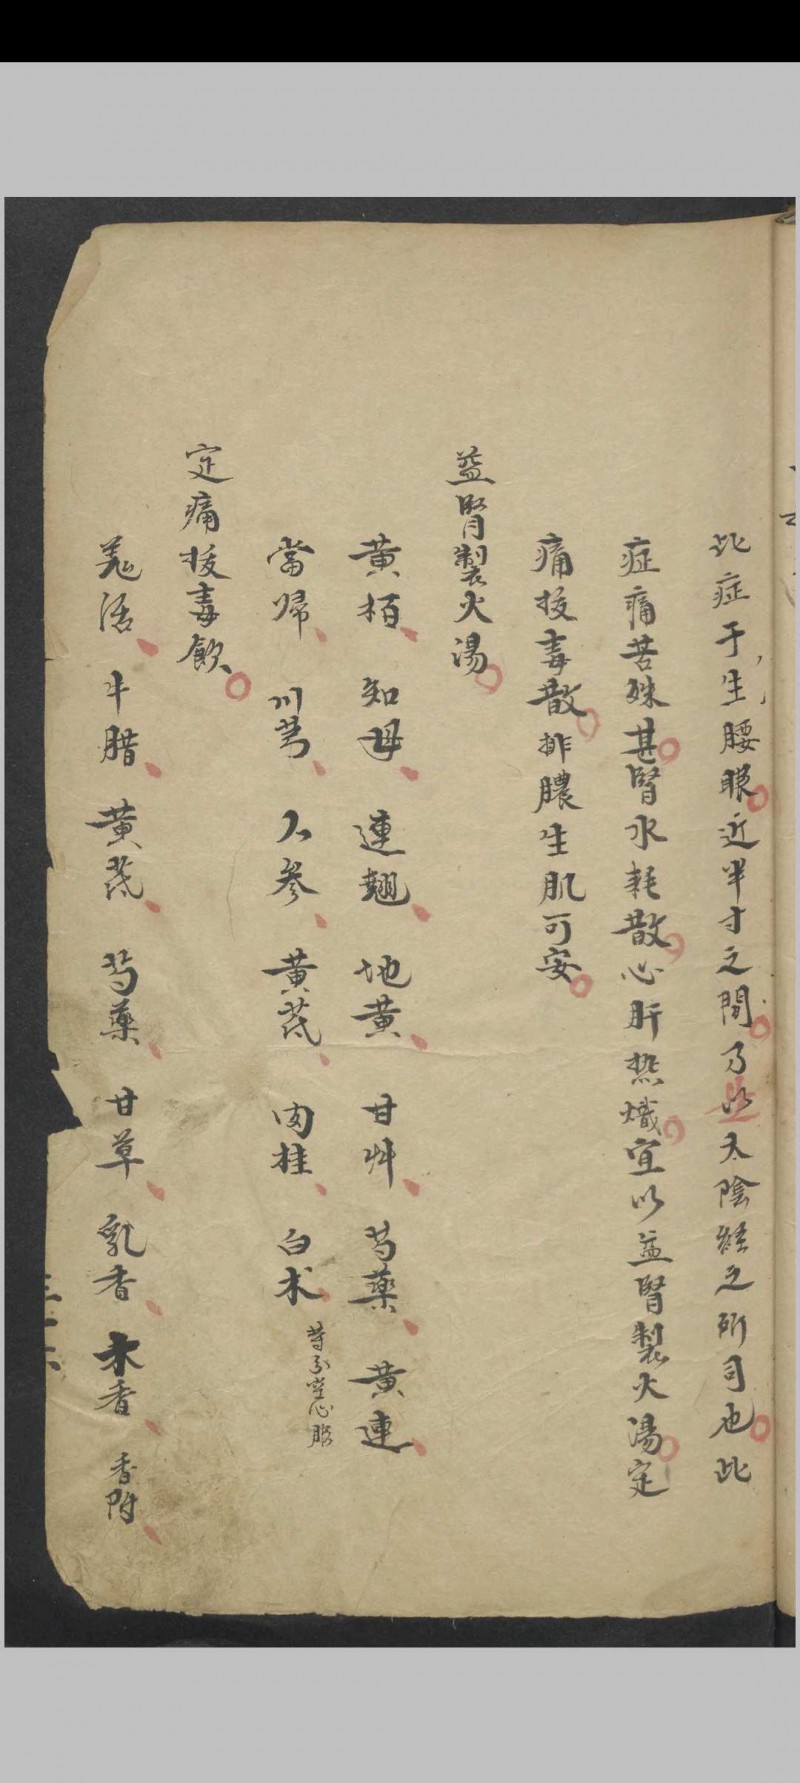 此症于生腰眼近半寸之間乃以太陰經之所司也此
症痛苦殊甚腎水耗散心肝熱熾宜以益腎製火湯定
痛拔毒散排膿生肌可安
益腎製火湯
黃栢 知母 連翹 地黃 甘艸 芍藥 黃連
當歸 川芎 人參 黃芪 肉桂 白朮 等分空心服
定痛拔毒飲
羗活 牛腊 黃芪 芍藥 甘草 乳香 木香 香附